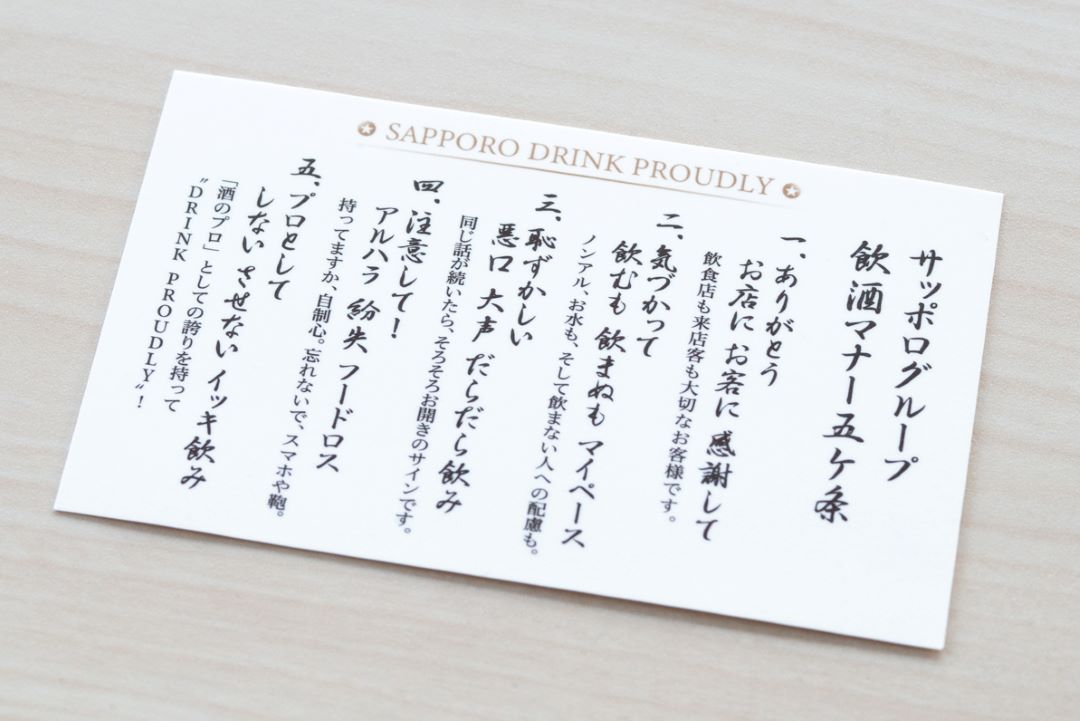 SAPPORO DRINK PROUDLY
サッポログループ
飲酒マナー五ケ条
一、ありがとう
お店に お客に 感謝して
飲食店も来店客も大切なお客様です。
二、気づかって
飲むも 飲まぬも マイペース
ノンアル、お水も、そして飲まない人への配慮も。
三、恥ずかしい
悪口 大声 だらだら飲み
同じ話が続いたら、そろそろお開きのサインです。
四、注意して!
アルハラ 紛失 フードロス
持ってますか、自制心。忘れないで、スマホや鞄。
五、プロとして
しない させない イッキ飲み
「酒のプロ」としての誇りを持って
"DRINK PROUDLY"!